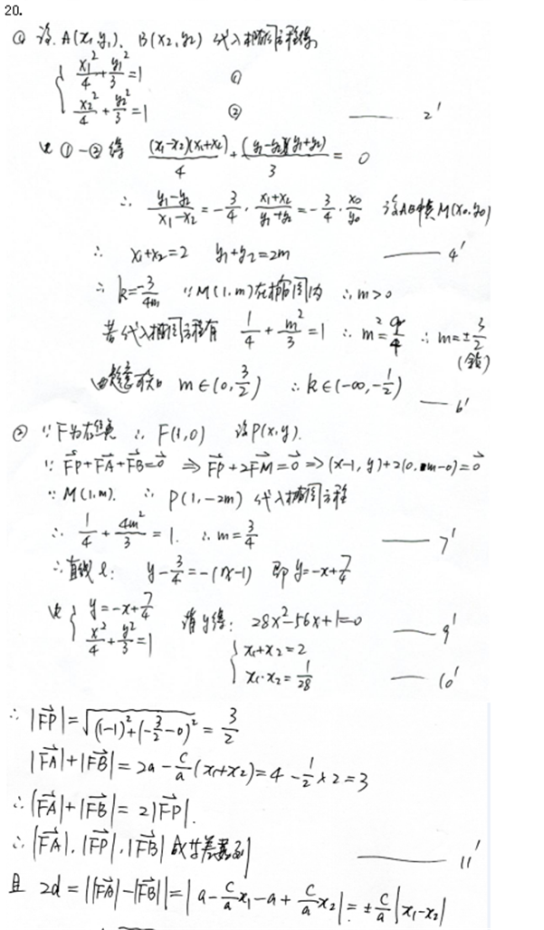 20.
① 设 A(x₁,y₁), B(x₂,y₂) 代入椭圆方程得
x₁²/4 + y₁²/3 = 1 ①
x₂²/4 + y₂²/3 = 1 ② —— 2'
由 ①-② 得 (x₁-x₂)(x₁+x₂)/4 + (y₁-y₂)(y₁+y₂)/3 = 0
∴ (y₁-y₂)/(x₁-x₂) = -3/4 · (x₁+x₂)/(y₁+y₂) = -3/4 · x₀/y₀ 设AB中点M(x₀,y₀)
∴ x₁+x₂=2 y₁+y₂=2m —— 4'
∴ k=-3/4m ∵M(1,m)在椭圆内 ∴m>0
若代入椭圆方程有 1/4 + m²/3 = 1 ∴ m²=9/4 ∴ m=±3/2
(舍)
由题意可知 m∈(0,3/2) ∴k∈(-∞,-1/2) —— 6'
② ∵F为右焦点 ∴ F(1,0) 设P(x,y).
∵ FP+FA+FB=0 ⇒ FP+2FM=0 ⇒ (x-1,y)+2(0,m-0)=0
∵ M(1,m). ∴ P(1,-2m) 代入椭圆方程
∴ 1/4 + 4m²/3 = 1. ∴ m=3/4 —— 7'
∴直线l: y-3/4=-(x-1) 即 y=-x+7/4
由 y=-x+7/4
x²/4 + y²/3 = 1 消y得: 28x²-56x+1=0 —— 9'
x₁+x₂=2
x₁·x₂=1/28 —— 10'
∴ |FP|=√((1-1)²+(-3/2-0)²) = 3/2
|FA|+|FB|=2a-c/a(x₁+x₂)=4-1/2×2=3
∴|FA|+|FB|=2|FP|.
∴|FA|,|FP|,|FB| 成等差数列 —— 11'
且 2d=||FA|-|FB||=|a-c/a x₁-a+c/a x₂|=±c/a|x₁-x₂|